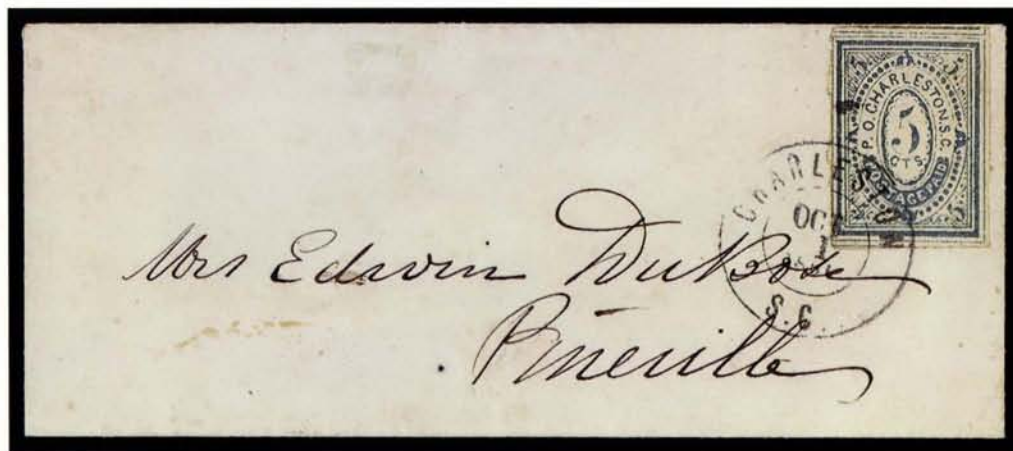 5 5
P.O. CHARLESTON. S.C.
5
CTS
POSTAGE PAID
5
CHARLESTON
OCT
S.C.
Mrs Edwin DuBose
Pineville